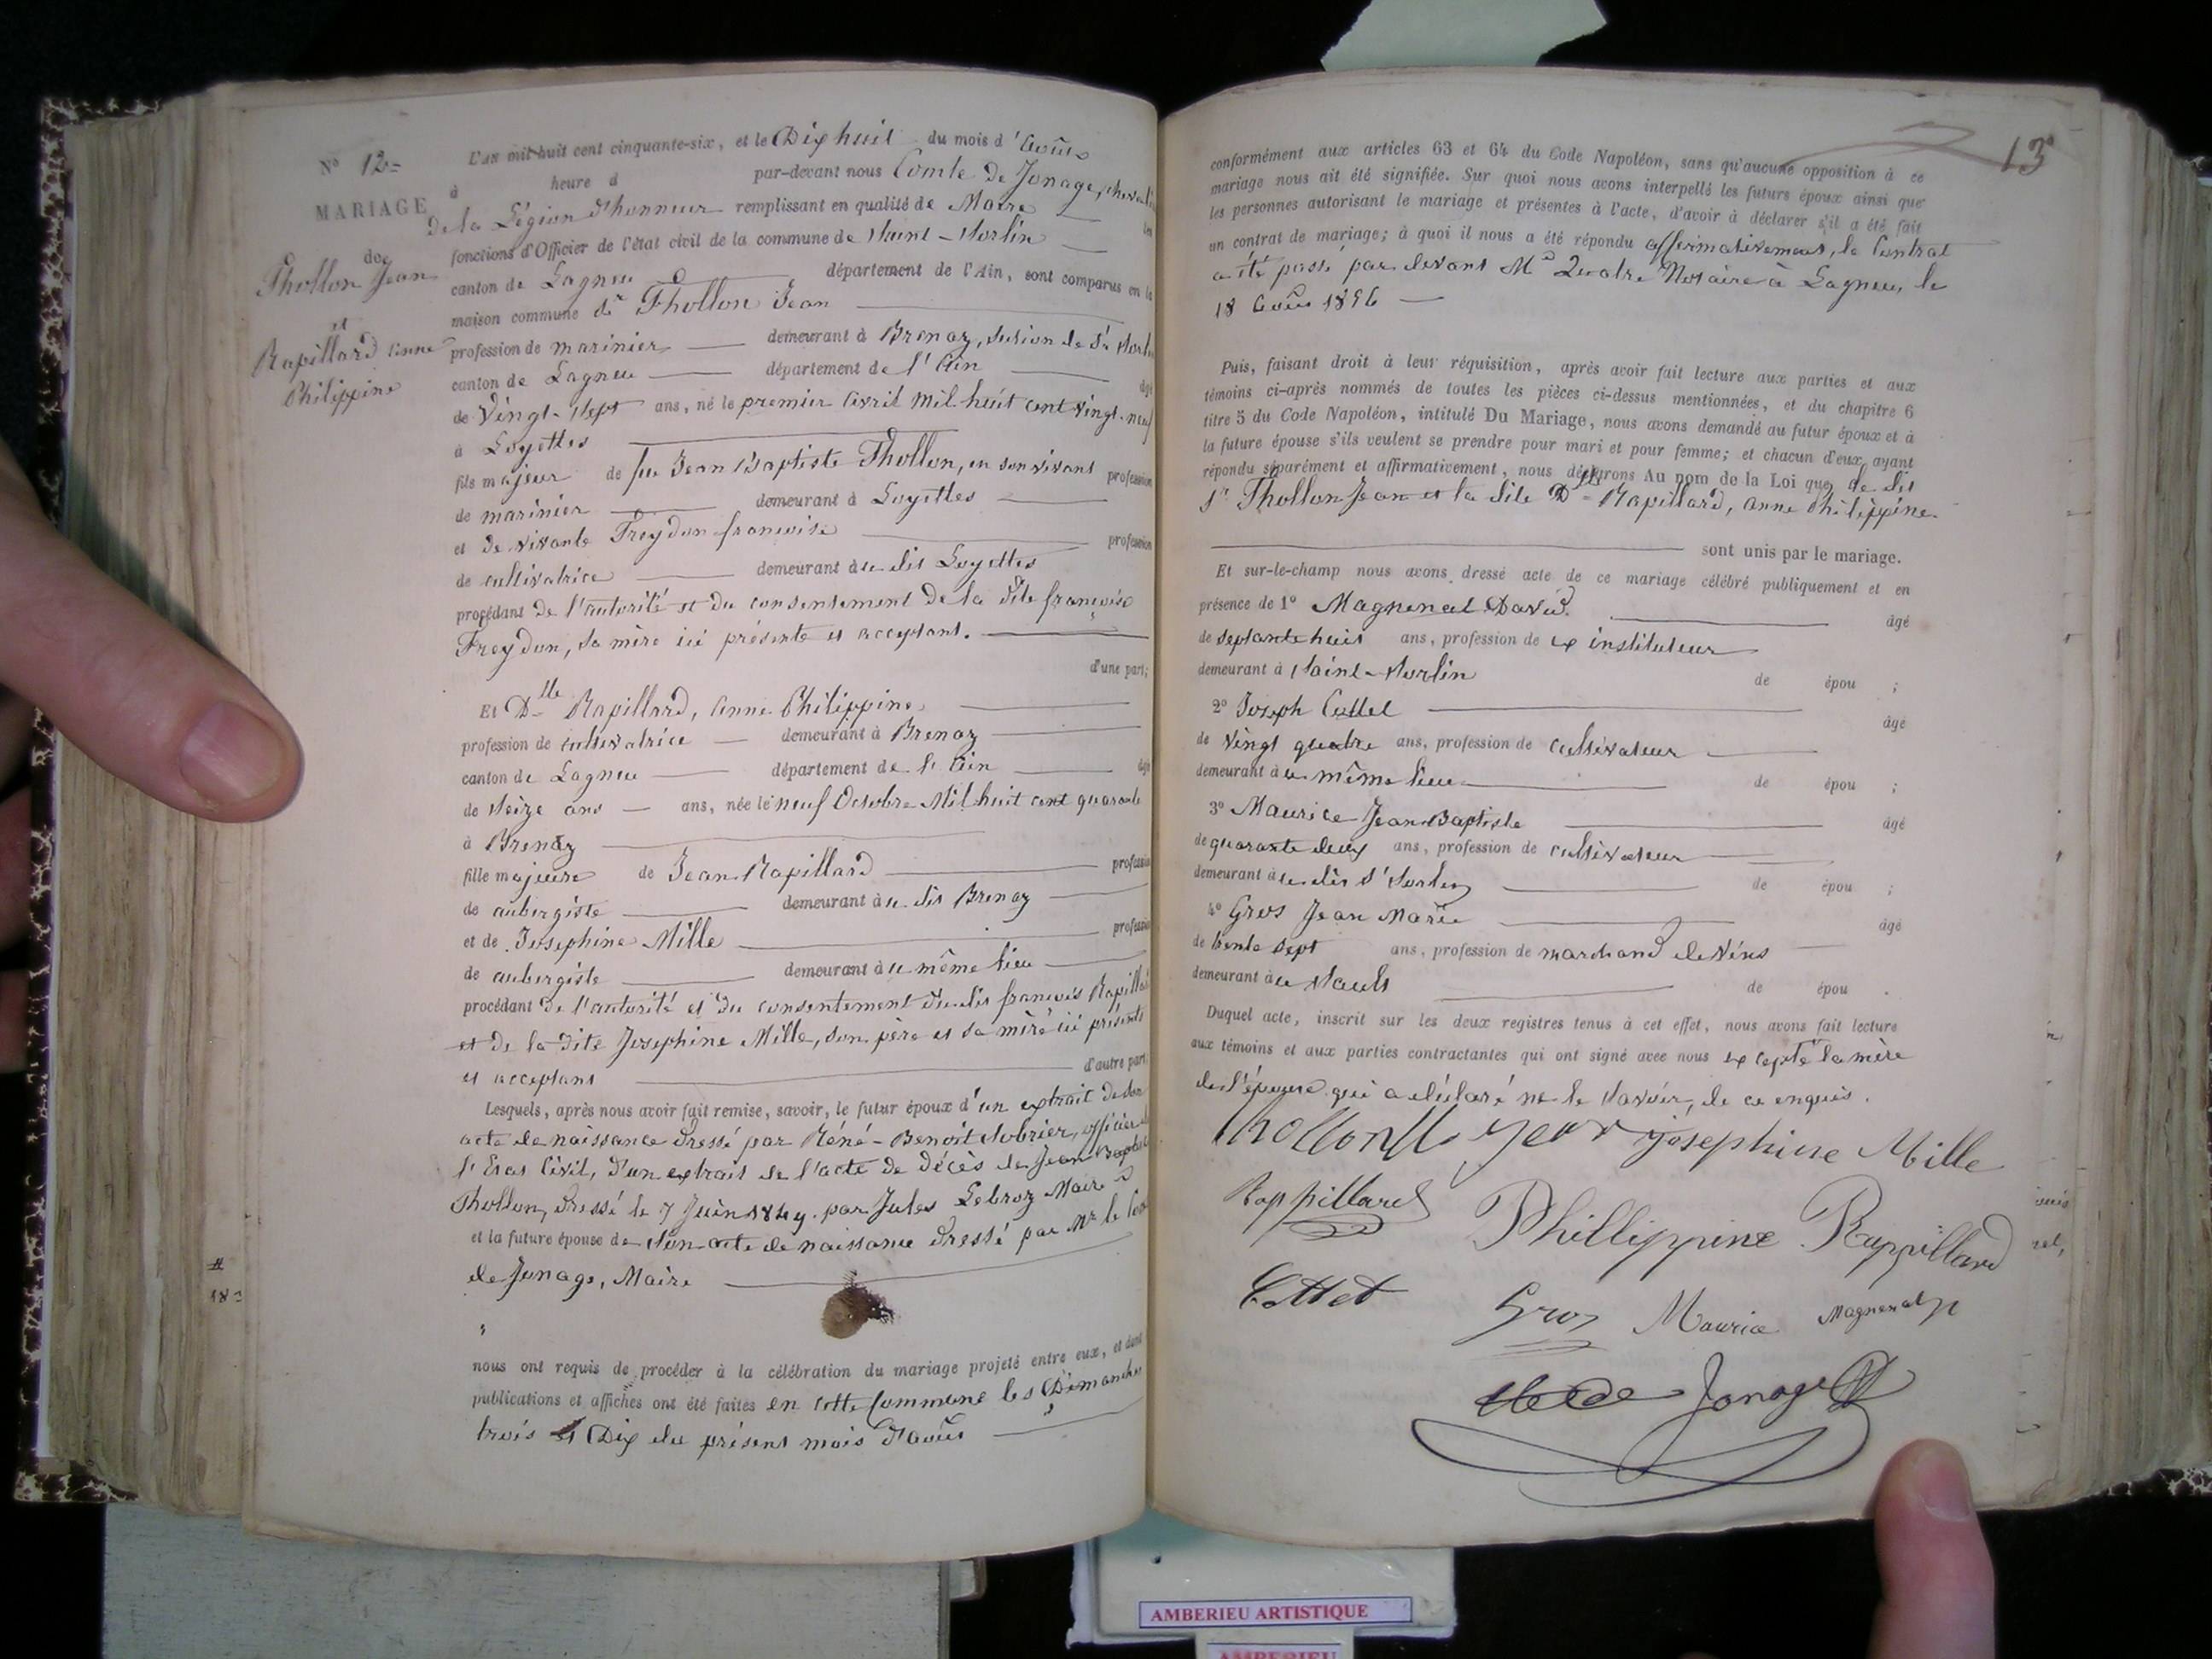 N° 12=
MARIAGE
de
Thollon Jean
et
Rapillard Anne
Philippine
L'an mil huit cent cinquante-six, et le Dix huit du mois d'Août
à heure d par-devant nous Comte de Jonage, cheva
de la Légion d'honneur remplissant en qualité de Maire les
fonctions d'Officier de l'état civil de la commune de Saint-Sorlin
canton de Lagnieu département de l'Ain, sont comparus en la
maison commune Sr Thollon Jean
profession de marinier demeurant à Brenaz, section de St Sorlin
canton de Lagnieu département de l'Ain âgé
de Vingt-sept ans, né le premier Avril Mil huit cent vingt-neuf
à Loyettes
fils majeur de feu Jean Baptiste Thollon, en son vivant profession
de marinier demeurant à Loyettes
et de vivante Freydon françoise profession
de cultivatrice demeurant à ce dit Loyettes
procédant de l'autorité et du consentement de la dite françoise
Freydon, sa mère ici présente et acceptant.
d'une part;
Et Dlle Rapillard, Anne Philippine
profession de cultivatrice demeurant à Brenaz
canton de Lagnieu département de l'Ain âgé
de Seize ans ans, née le neuf Octobre Mil huit cent quarante
à Brenaz
fille majeure de Jean Rapillard profession
de aubergiste demeurant à ce dit Brenaz
et de Josephine Mille profession
de aubergiste demeurant à ce même lieu
procédant de l'autorité et du consentement du dit françois Rapillard
et de la dite Josephine Mille, son père et sa mère ici présents
et acceptant
d'autre part.
Lesquels, après nous avoir fait remise, savoir, le futur époux d'un extrait de son
acte de naissance dressé par Réné-Benoit Sobrier, officier de
l'Etat Civil, d'un extrait de l'acte de décès de Jean Baptiste
Thollon, dressé le 7 Juin 1849 par Jules Lebroz Maire
et la future épouse de son acte de naissance dressé par Mr le Comte
de Jonage, Maire
nous ont requis de procéder à la célébration du mariage projeté entre eux, et dont
publications et affiches ont été faites en cette Commune les Dimanches
trois et Dix du présent mois d'août
13
conformément aux articles 63 et 64 du Code Napoléon, sans qu'aucune opposition à ce
mariage nous ait été signifiée. Sur quoi nous avons interpellé les futurs époux ainsi que
les personnes autorisant le mariage et présentes à l'acte, d'avoir à déclarer s'il a été fait
un contrat de mariage; à quoi il nous a été répondu affirmativement, le Contrat
a été passé par devant Me Quatre Notaire à Lagnieu, le
18 Août 1856
Puis, faisant droit à leur réquisition, après avoir fait lecture aux parties et aux
témoins ci-après nommés de toutes les pièces ci-dessus mentionnées, et du chapitre 6
titre 5 du Code Napoléon, intitulé Du Mariage, nous avons demandé au futur époux et à
la future épouse s'ils veulent se prendre pour mari et pour femme; et chacun d'eux ayant
répondu séparément et affirmativement, nous déclarons Au nom de la Loi que, le dit
Sr Thollon Jean et la dite Dlle Rapillard, Anne Philippine
sont unis par le mariage.
Et sur-le-champ nous avons dressé acte de ce mariage célébré publiquement et en
présence de 1° Magnenat David. âgé
de septante huit ans, profession de ex instituteur
demeurant à Saint-Sorlin de épou ;
2° Joseph Cottet âgé
de Vingt quatre ans, profession de cultivateur
demeurant à ce même lieu de épou ;
3° Maurice Jean Baptiste âgé
de quarante deux ans, profession de cultivateur
demeurant à ce dit St Sorlin de épou ;
4° Gros Jean Marie âgé
de trente sept ans, profession de marchand de vins
demeurant à de épou .
Duquel acte, inscrit sur les deux registres tenus à cet effet, nous avons fait lecture
aux témoins et aux parties contractantes qui ont signé avec nous excepté la mère
de l'épouse qui a déclaré ne le savoir, de ce enquis.
thollon jean josephine Mille
Rappillard Phillippine Rappillard
Cottet Gros Maurice Magnenat
Cte de Jonage
AMBERIEU ARTISTIQUE
AMBERIEU